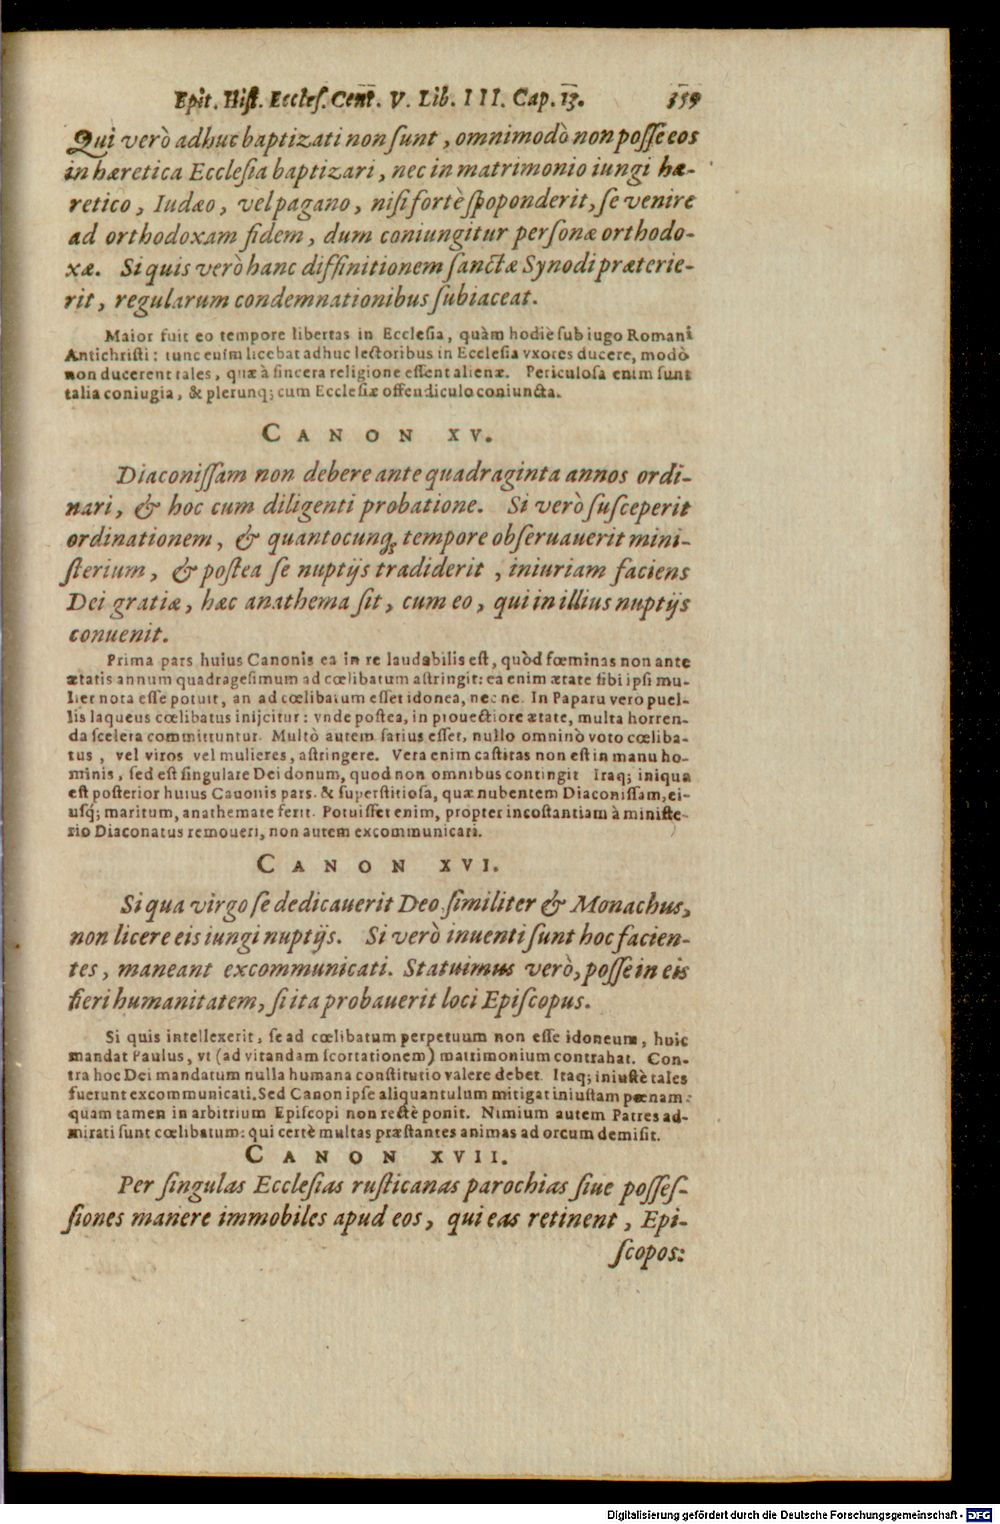 Epit. Hist. Eccles. Cent. V. Lib. III. Cap. 13. 359
Qui verò adhuc baptizati non ſunt, omnimodò non poſſe eos
in hæretica Eccleſia baptizari, nec in matrimonio iungi hæ-
retico, Iudæo, vel pagano, niſi fortè ſpoponderit, ſe venire
ad orthodoxam fidem, dum coniungitur perſonæ orthodo-
xæ. Si quis verò hanc diffinitionem ſanctæ Synodi præterie-
rit, regularum condemnationibus ſubiaceat.
Maior fuit eo tempore libertas in Eccleſia, quàm hodiè ſub iugo Romani
Antichriſti: tunc enim licebat adhuc lectoribus in Eccleſia vxores ducere, modò
non ducerent tales, quæ à ſincera religione eſſent alienæ. Periculoſa enim ſunt
talia coniugia, & plerunq; cum Eccleſiæ offendiculo coniuncta.
CANON XV.
Diaconiſſam non debere ante quadraginta annos ordi-
nari, & hoc cum diligenti probatione. Si verò ſuſceperit
ordinationem, & quantocunq; tempore obſeruauerit mini-
ſterium, & poſtea ſe nuptijs tradiderit, iniuriam faciens
Dei gratiæ, hæc anathema ſit, cum eo, qui in illius nuptijs
conuenit.
Prima pars huius Canonis ea in re laudabilis eſt, quòd fœminas non ante
ætatis annum quadrageſimum ad cœlibatum aſtringit: ea enim ætate ſibi ipſi mu-
lier nota eſſe potuit, an ad cœlibatum eſſet idonea, nec ne. In Papatu verò puel-
lis laqueus cœlibatus inijcitur: vnde poſtea, in prouectiore ætate, multa horren-
da ſcelera committuntur. Multò autem ſatius eſſet, nullo omninò voto cœliba-
tus, vel viros vel mulieres, aſtringere. Vera enim caſtitas non eſt in manu ho-
minis, ſed eſt ſingulare Dei donum, quod non omnibus contingit Itaq; iniqua
eſt poſterior huius Canonis pars. & ſuperſtitioſa, quæ nubentem Diaconiſſam, ei-
uſq; maritum, anathemate ferit. Potuiſſet enim, propter incoſtantiam à miniſte-
rio Diaconatus remoueri, non autem excommunicari.
CANON XVI.
Si qua virgo ſe dedicauerit Deo ſimiliter & Monachus,
non licere eis iungi nuptijs. Si verò inuenti ſunt hoc facien-
tes, maneant excommunicati. Statuimus verò, poſſe in eis
fieri humanitatem, ſi ita probauerit loci Epiſcopus.
Si quis intellexerit, ſe ad cœlibatum perpetuum non eſſe idoneum, huic
mandat Paulus, vt (ad vitandam ſcortationem) matrimonium contrahat. Con-
tra hoc Dei mandatum nulla humana conſtitutio valere debet. Itaq; iniuſtè tales
fuerunt excommunicati. Sed Canon ipſe aliquantulum mitigat iniuſtam pœnam:
quam tamen in arbitrium Epiſcopi non rectè ponit. Nimium autem Patres ad-
mirati ſunt cœlibatum: qui certè multas præſtantes animas ad orcum demiſit.
CANON XVII.
Per ſingulas Eccleſias ruſticanas parochias ſiue poſſeſ-
ſiones manere immobiles apud eos, qui eas retinent, Epi-
ſcopos:
Digitalisierung gefördert durch die Deutsche Forschungsgemeinschaft - DFG